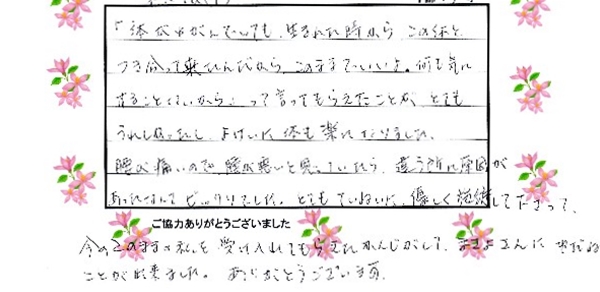 「体がゆがんでいても、生まれた時から この体と
つき合って来たんだから このままでいいよ。何も気に
することはないから」って言ってもらえたことが とても
うれしかったし、よけいに体も楽になりました。
腰が痛いので 腰が悪いと思っていたら 違う所に原因が
あったなんて ビックリでした。とてもていねいに、優しく施術して下さって、
ご協力ありがとうございました
今のこのままの私を 受け入れてもらえた かんじがして、
ことが出来ました。 ありがとうございます。